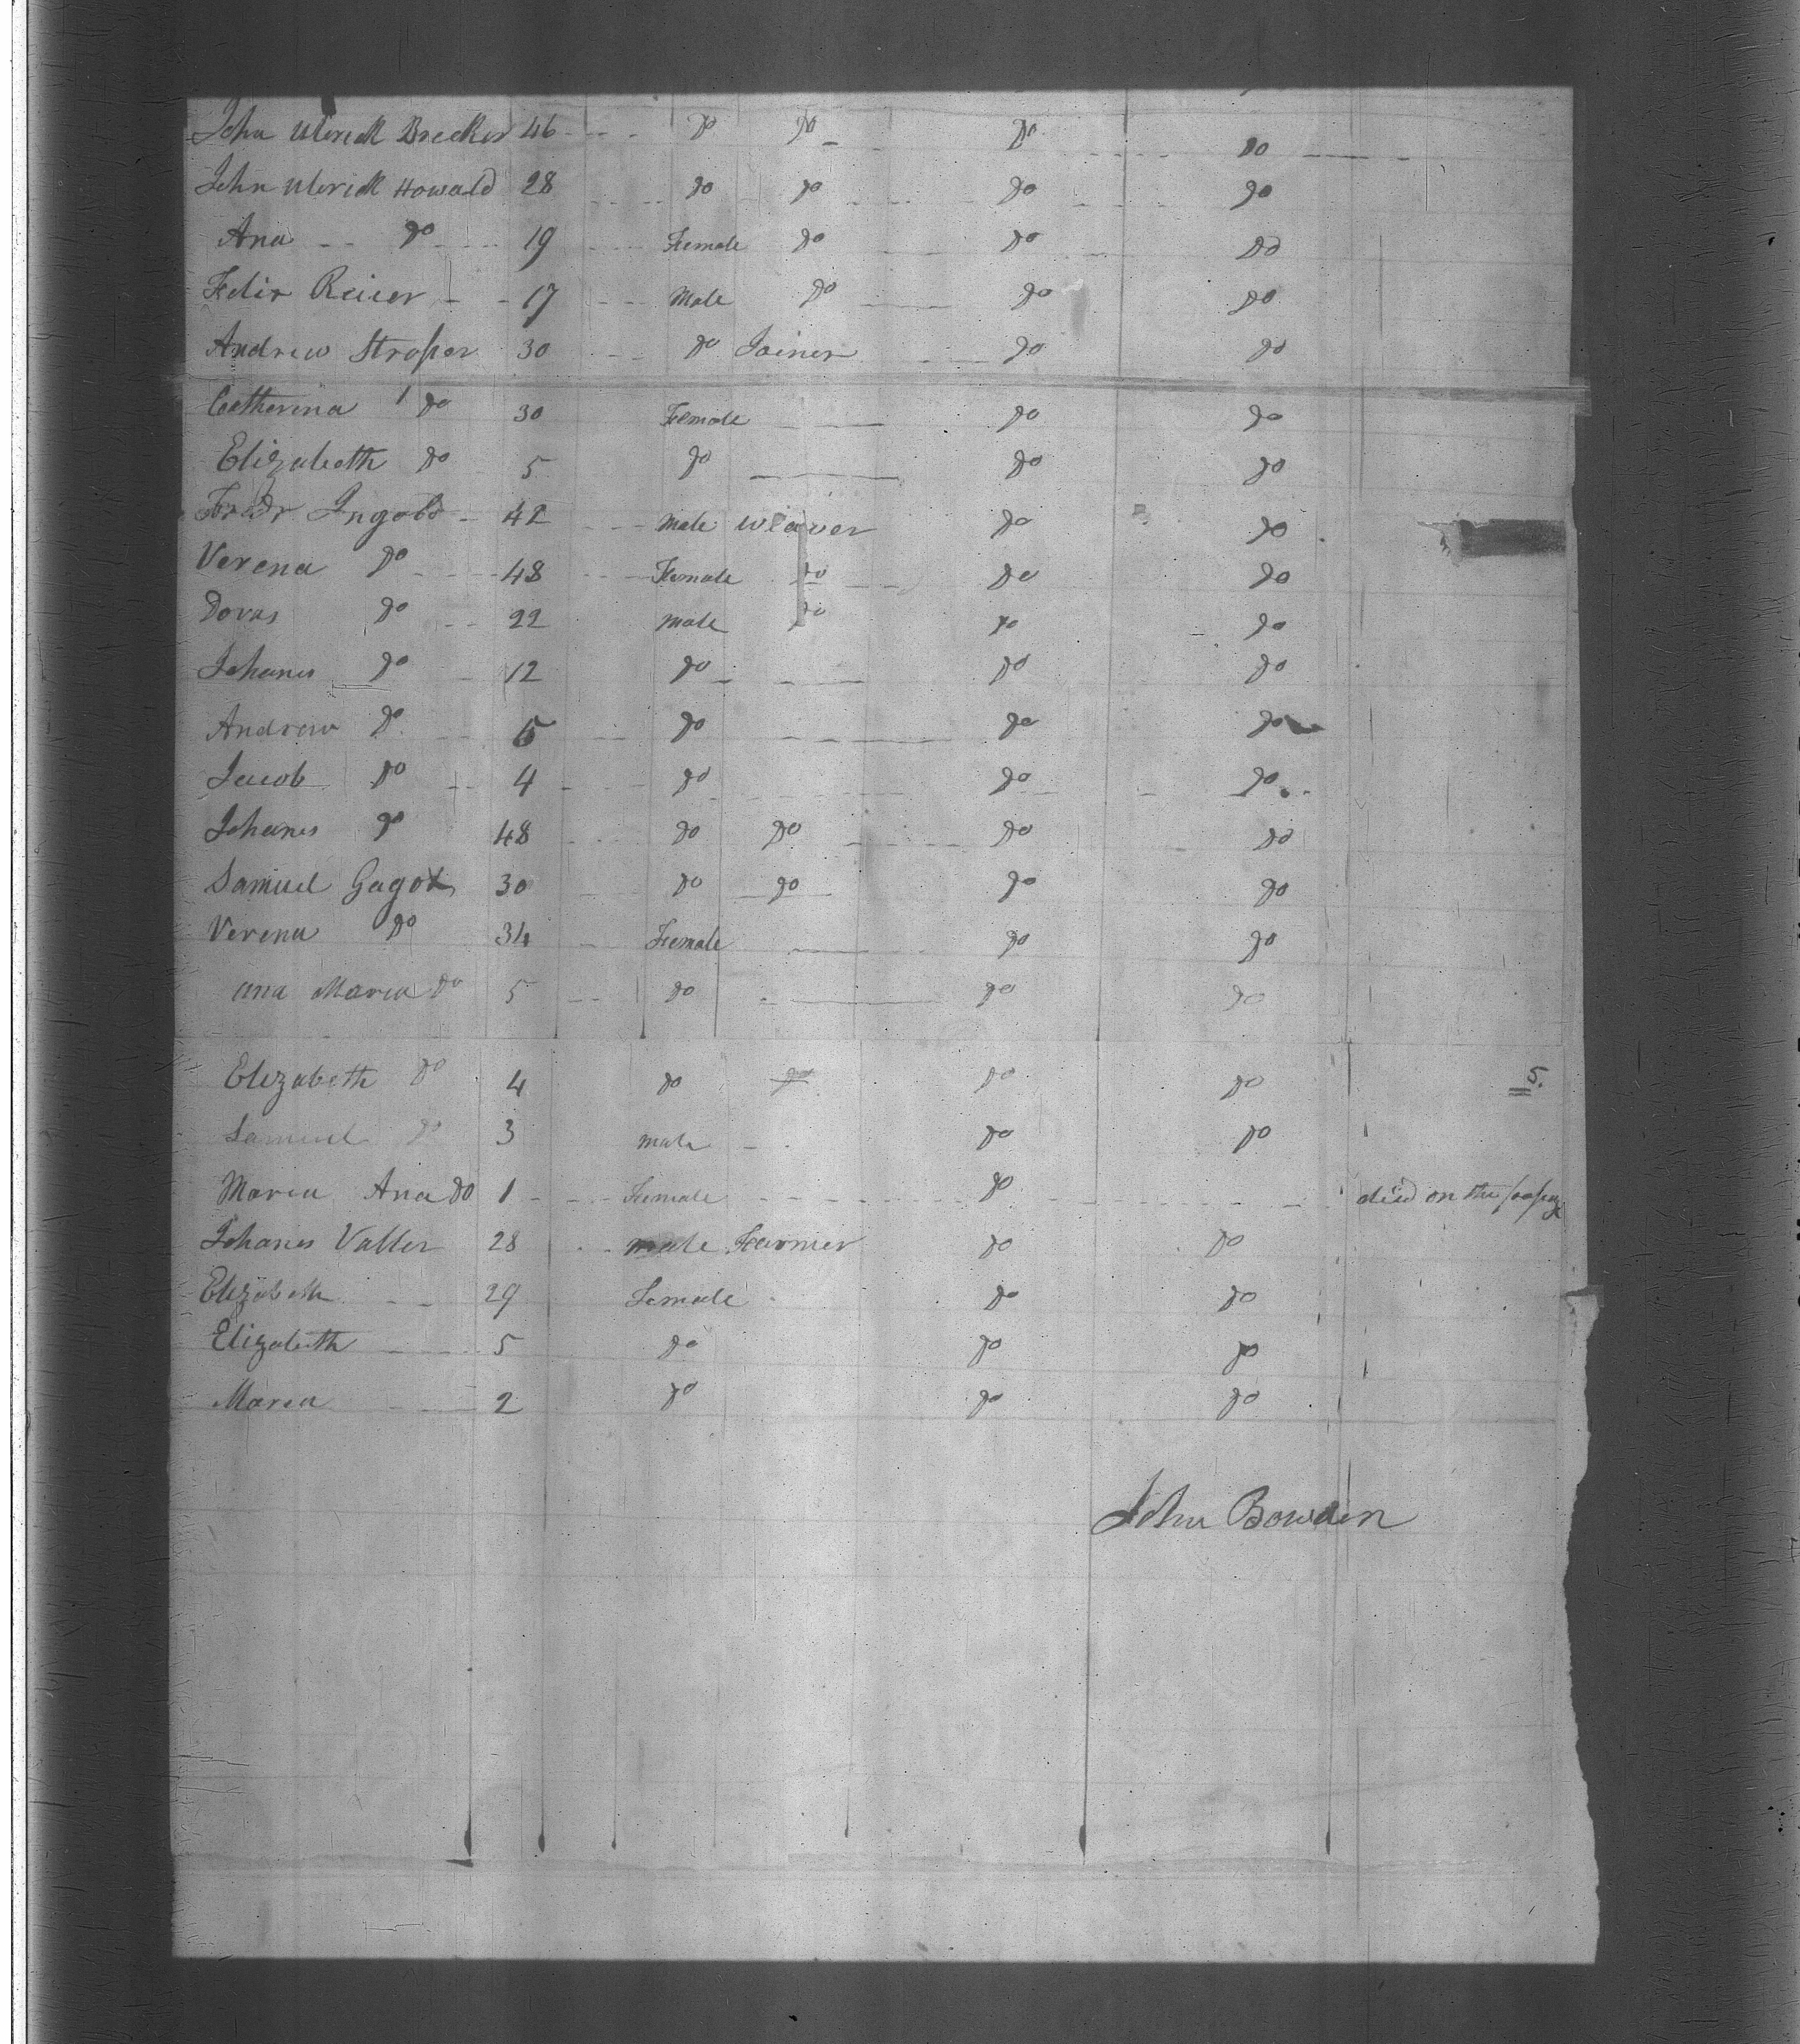 John Ulrick Brecker 46 do do do do
John Ulrick Howald 28 do do do do
Ana do 19 Female do do do
Felix Reiier 17 Male do do do
Andrew Strasser 30 do Joiner do do
Catherina do 30 Female do do
Elizabeth do 5 do do do
Ingold 42 Male Weaver do do
Verena do 48 Female do do do
do 22 male do do do
Johanes do 12 do do do
Andrew do 5 do do do
Jacob do 4 do do do
Johanes do 48 do do do do
Samuel Gagox 30 do do do do
Verena do 34 Female do do
ana Maria do 5 do do do
Elizabeth do 4 do do do do 5.
Samuel do 3 male do do
Maria Ana do 1 Female do died on the passage
Johanes Valler 28 male Farmer do do
Elizabeth 29 Female do do
Elizabeth 5 do do do
Maria 2 do do do
John Bowden